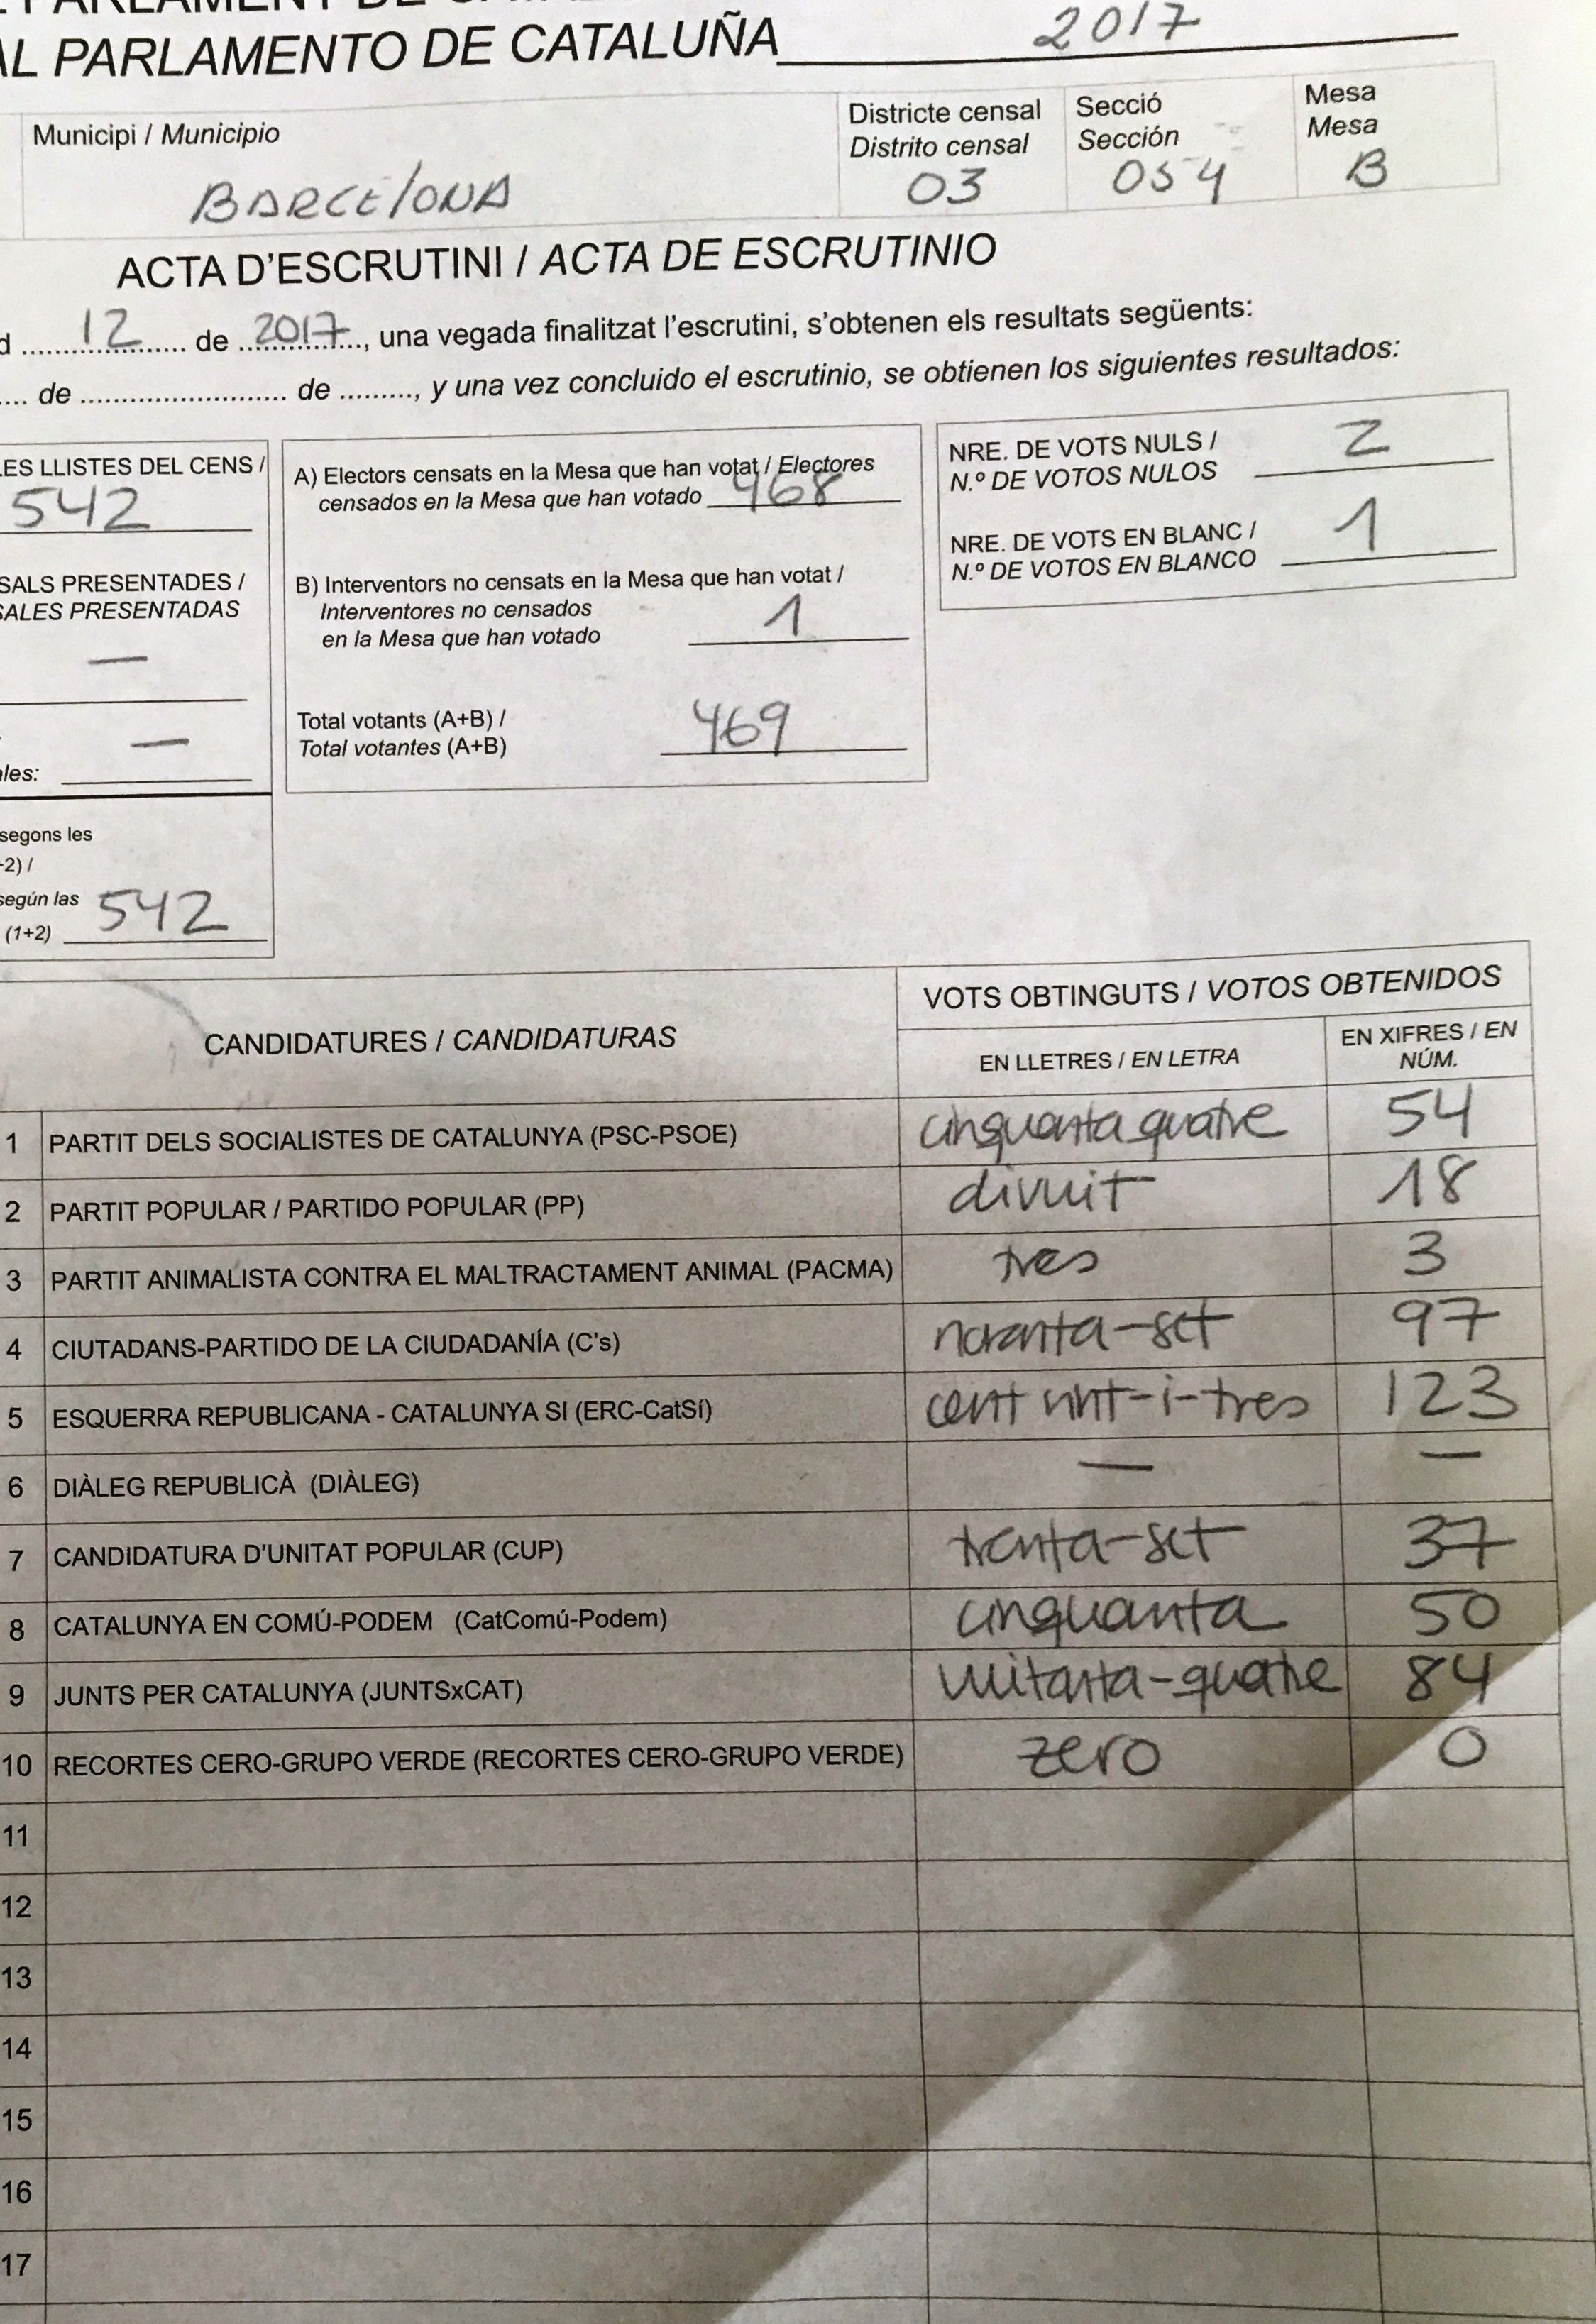 AL PARLAMENTO DE CATALUÑA 2017
Municipi / Municipio
BARCElONA
Districte censal
Distrito censal
03
Secció
Sección
054
Mesa
Mesa
B
ACTA D'ESCRUTINI / ACTA DE ESCRUTINIO
12 de 2017, una vegada finalitzat l'escrutini, s'obtenen els resultats següents:
.... de ........................ de ........., y una vez concluido el escrutinio, se obtienen los siguientes resultados:
LES LLISTES DEL CENS /
542
SALS PRESENTADES /
SALES PRESENTADAS
—
—
ales:
segons les
-2) /
según las
(1+2) 542
A) Electors censats en la Mesa que han votat / Electores
censados en la Mesa que han votado 468
B) Interventors no censats en la Mesa que han votat /
Interventores no censados
en la Mesa que han votado 1
Total votants (A+B) /
Total votantes (A+B) 469
NRE. DE VOTS NULS /
N.º DE VOTOS NULOS 2
NRE. DE VOTS EN BLANC /
N.º DE VOTOS EN BLANCO 1
CANDIDATURES / CANDIDATURAS
VOTS OBTINGUTS / VOTOS OBTENIDOS
EN LLETRES / EN LETRA
EN XIFRES / EN
NÚM.
1 PARTIT DELS SOCIALISTES DE CATALUNYA (PSC-PSOE) cinquanta quatre 54
2 PARTIT POPULAR / PARTIDO POPULAR (PP) divuit 18
3 PARTIT ANIMALISTA CONTRA EL MALTRACTAMENT ANIMAL (PACMA) tres 3
4 CIUTADANS-PARTIDO DE LA CIUDADANÍA (C's) noranta-set 97
5 ESQUERRA REPUBLICANA - CATALUNYA SI (ERC-CatSí) cent vint-i-tres 123
6 DIÀLEG REPUBLICÀ (DIÀLEG) — —
7 CANDIDATURA D'UNITAT POPULAR (CUP) trenta-set 37
8 CATALUNYA EN COMÚ-PODEM (CatComú-Podem) cinquanta 50
9 JUNTS PER CATALUNYA (JUNTSxCAT) vuitanta-quatre 84
10 RECORTES CERO-GRUPO VERDE (RECORTES CERO-GRUPO VERDE) zero 0
11
12
13
14
15
16
17